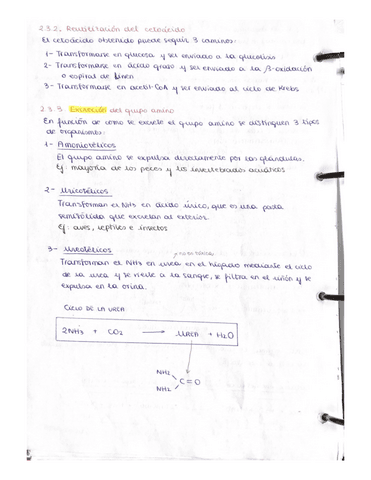 2.3.2. Reutilización del cetoácido
El cetoácido obtenido puede seguir 3 caminos:
1- Transformarse en glucosa y ser enviado a la glucolisis
2- Transformarse en ácido graso y ser enviado a la β-oxidación
o espiral de Linen
3- Transformarse en acetil-CoA y ser enviado al ciclo de Krebs
2.3.3. Excreción del grupo amino
En función de como se excrete el grupo amino se distinguen 3 tipos
de organismos:
1- Amoniotélicos
El grupo amino se expulsa directamente por las glándulas.
Ej: mayoría de los peces y los invertebrados acuáticos
2- Uricotélicos
Transforman el NH3 en ácido úrico, que es una pasta
semisólida que excretan al exterior.
Ej: aves, reptiles e insectos
3- Ureotélicos
Transforman el NH3 en urea en el hígado mediante el ciclo
de la urea y se vierte a la sangre, se filtra en el riñón y se
expulsa en la orina.
CICLO DE LA UREA
2NH3 + CO2 → UREA + H2O
NH2
C=O
NH2